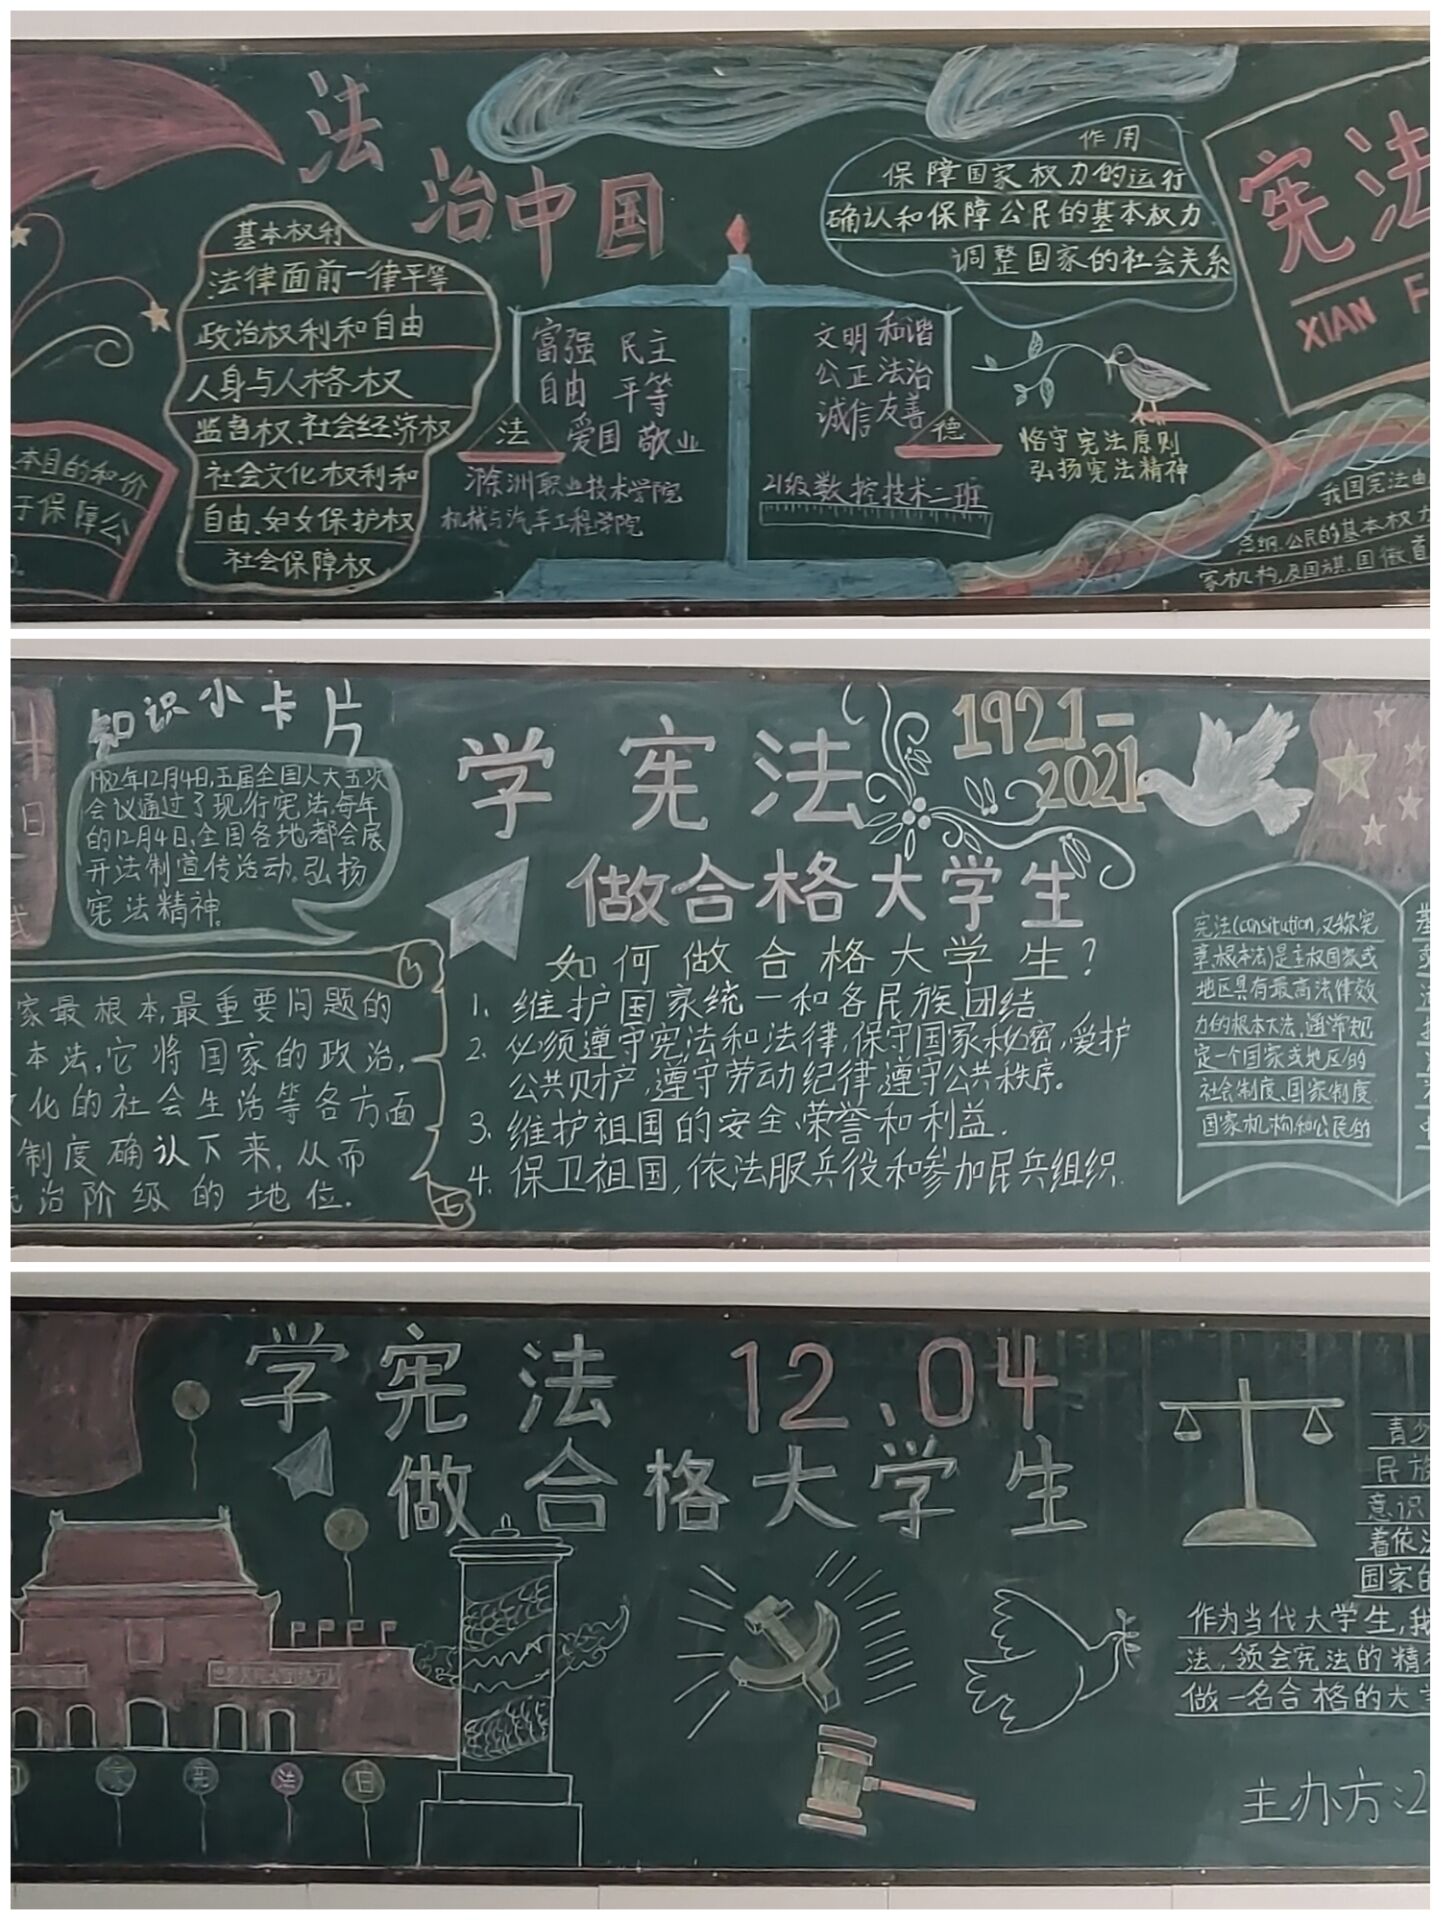 法
治中国
基本权利
法律面前一律平等
政治权利和自由
人身与人格权
监督权、社会经济权
社会文化权利和
自由、妇女保护权
社会保障权
本目的和价
于保障公
富强 民主
自由 平等
爱国 敬业
法
滁洲职业技术学院
机械与汽车工程学院
文明 和谐
公正 法治
诚信 友善
德
21级数控技术二班
作用
保障国家权力的运行
确认和保障公民的基本权力
调整国家的社会关系
恪守宪法原则
弘扬宪法精神
宪法
XIAN F
我国宪法由
总纲、公民的基本权力
家机构,及国旗、国徽、首
知识小卡片
1982年12月4日,五届全国人大五次
会议通过了现行宪法,每年
的12月4日,全国各地都会展
开法制宣传活动。弘扬
宪法精神。
日
式
家最根本,最重要问题的
本法,它将国家的政治,
文化的社会生活等各方面
制度确认下来,从而
统治阶级的地位.
学宪法
1921-
2021
做合格大学生
如何做合格大学生?
1. 维护国家统一和各民族团结
2. 必须遵守宪法和法律,保守国家秘密,爱护
公共财产,遵守劳动纪律,遵守公共秩序。
3. 维护祖国的安全、荣誉和利益.
4. 保卫祖国,依法服兵役和参加民兵组织.
宪法(consitution,又称宪
章、根本法)是主权国家或
地区具有最高法律效
力的根本大法,通常规
定一个国家或地区的
社会制度、国家制度
国家机构和公民的
基
学宪法 12.04
做合格大学生
宪
法
日
青少
民族
意识
着依法
国家的
作为当代大学生,我
法,领会宪法的精
做一名合格的大学
主办方:2